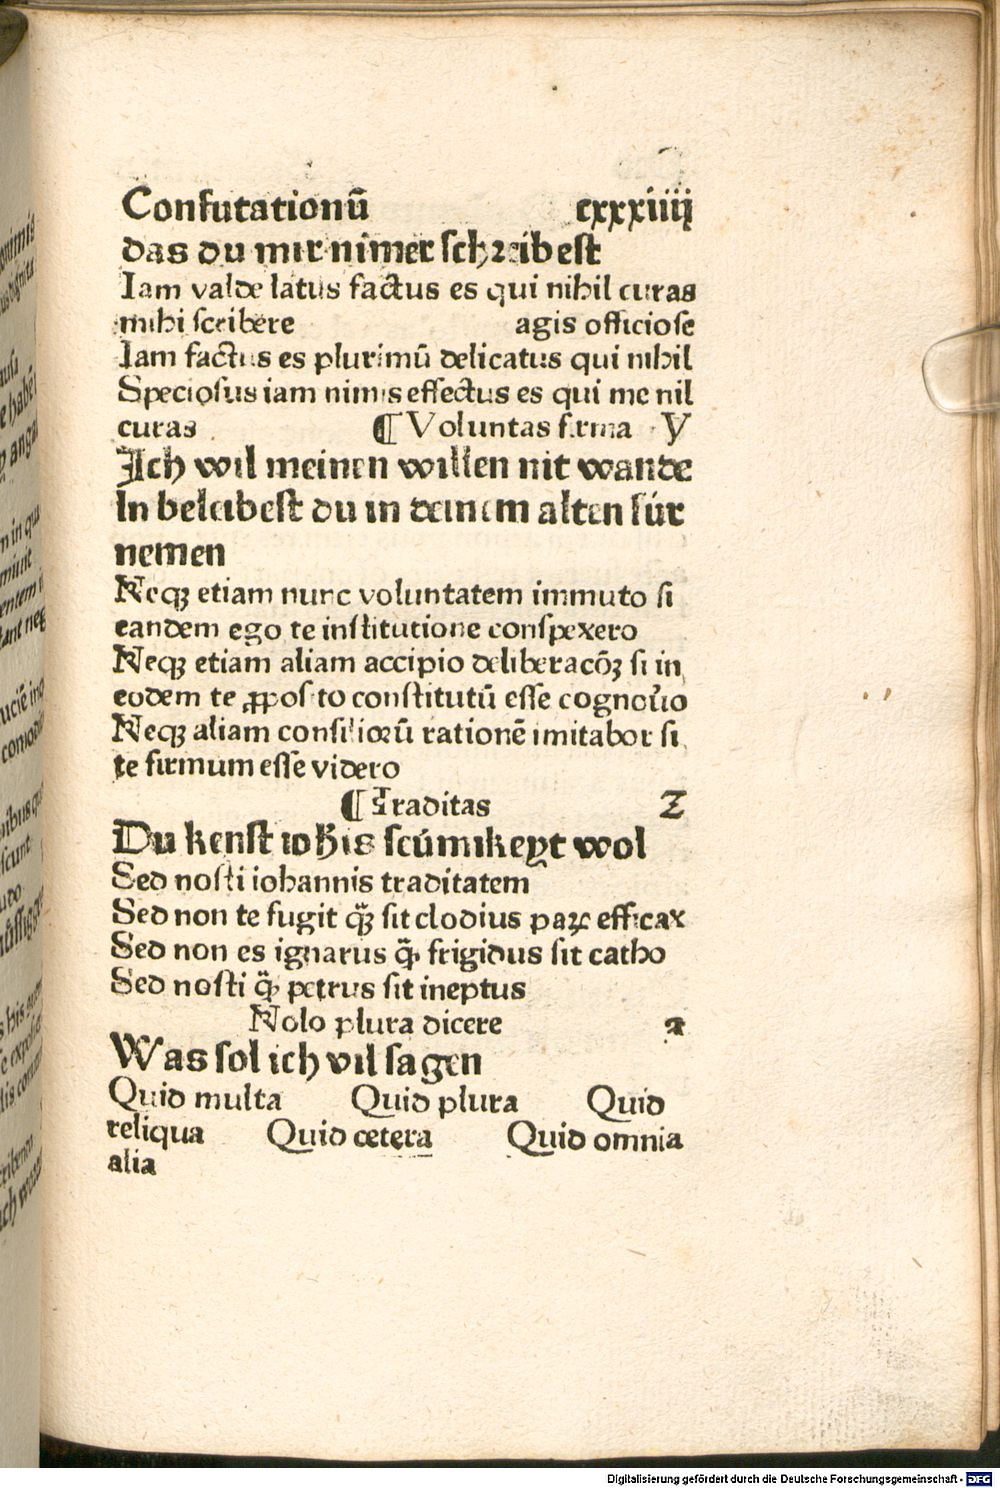 Confutationū cxxxiiij
das du mir nimer schreibest
Iam valde latus factus es qui nihil curas
mihi scribere agis officiose
Iam factus es plurimū delicatus qui nihil
Speciosus iam nimis effectus es qui me nil
curas ¶ Voluntas firma y
Ich wil meinen willen nit wande
ln beleibest du in deinem alten für
nemen
Neqȝ etiam nunc voluntatem immuto si
eandem ego te institutione conspexero
Neqȝ etiam aliam accipio deliberacōȝ si in
eodem te ꝓposito constitutū esse cognouo
Neqȝ aliam consiliorū rationē imitabor si
te firmum esse videro
¶ Traditas z
Du kenst iohīs scümikeyt wol
Sed nosti iohannis traditatem
Sed non te fugit qȝ sit clodius paꝝ efficax
Sed non es ignarus qꝫ frigidus sit catho
Sed nosti qꝫ petrus sit ineptus
Nolo plura dicere ꝛ
Was sol ich vil sagen
Quid multa Quid plura Quid
reliqua Quid cetera Quid omnia
alia
Digitalisierung gefördert durch die Deutsche Forschungsgemeinschaft - DFG